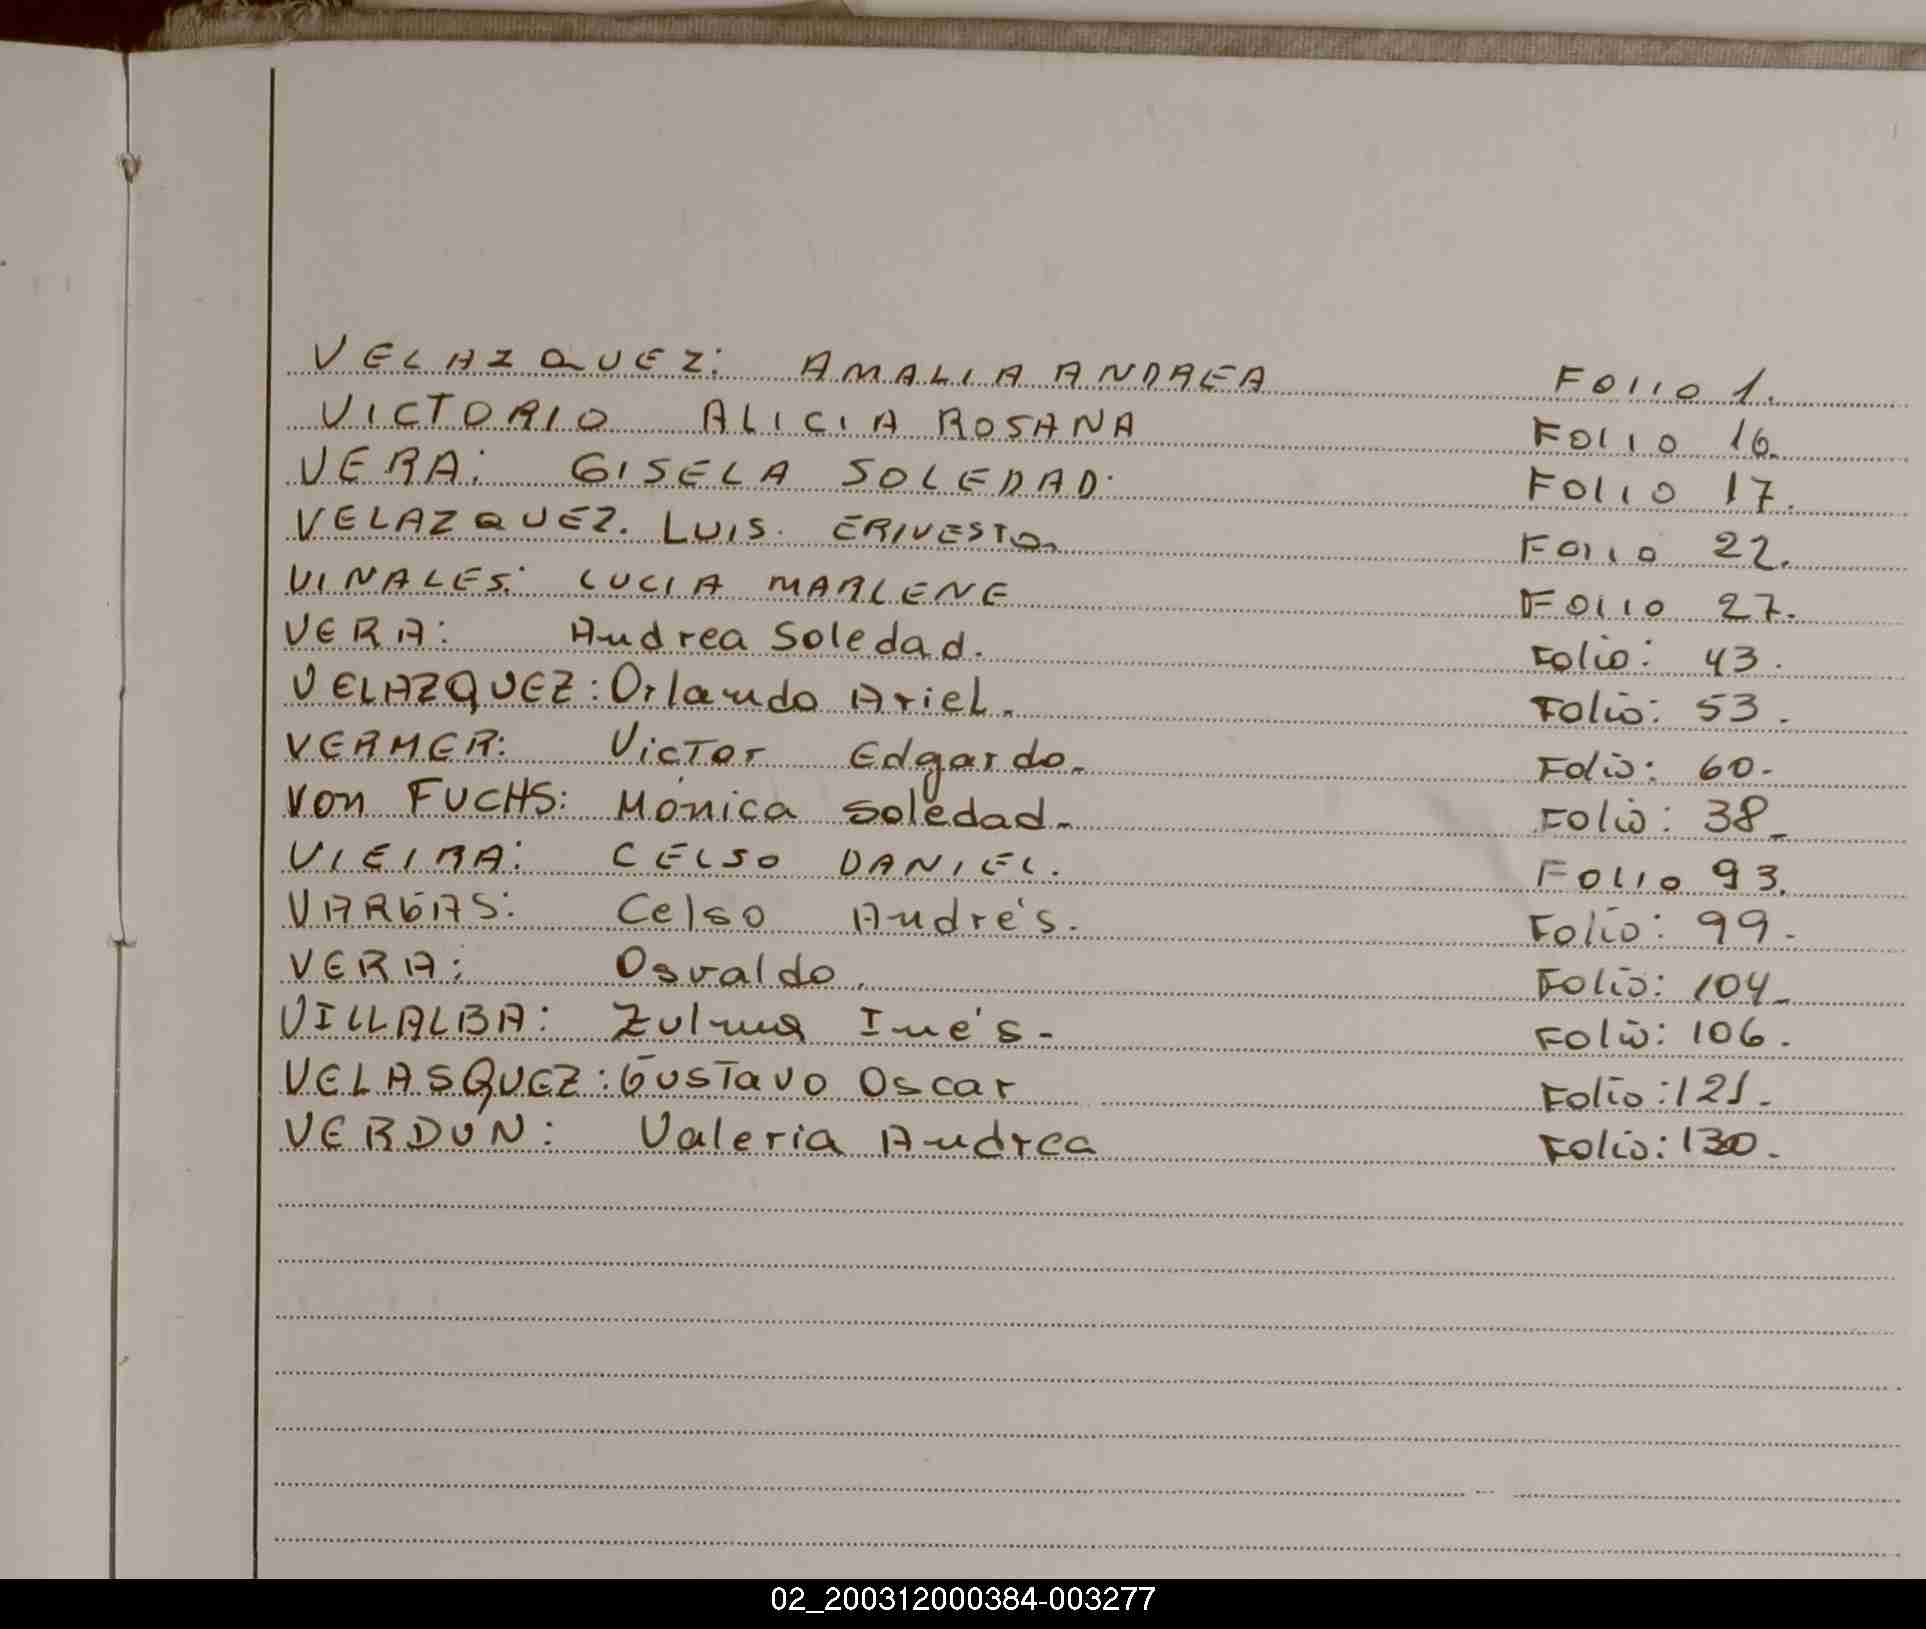 VELAZQUEZ: AMALIA ANDREA FOLIO 1.
VICTORIO ALICIA ROSANA FOLIO 16.
VERA: GISELA SOLEDAD. FOLIO 17.
VELAZQUEZ. LUIS. ERNESTO. FOLIO 22.
VINALES: LUCIA MARLENE FOLIO 27.
VERA: Andrea Soledad. Folio: 43.
VELAZQUEZ: Orlando Ariel. Folio: 53.
VERMER: Victor Edgardo. Folio: 60.
Von FUCHS: Mónica Soledad. Folio: 38
VIEIRA: CELSO DANIEL. FOLIO 93.
VARGAS: Celso Andrés. Folio: 99.
VERA: Osvaldo. Folio: 104
VILLALBA: Zulma Inés. Folio: 106.
VELASQUEZ: Gustavo Oscar Folio: 121.
VERDUN: Valeria Andrea Folio: 130.
02_200312000384-003277